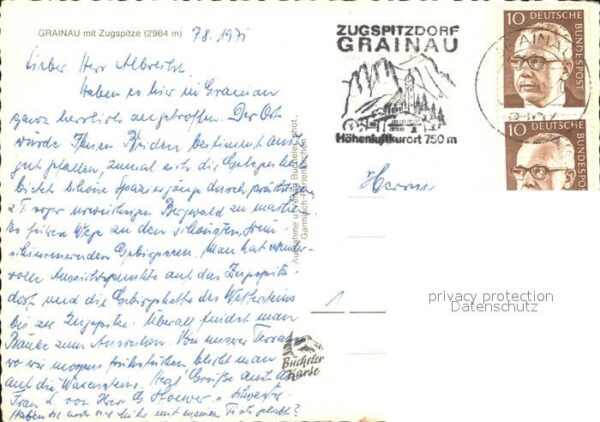 GRAINAU mit Zugspitze (2964 m)
7.8.1971
Lieber Herr Albrecht,
Haben es hier in Grainau
ganz herrlich angetroffen. Der Ort
würde Ihnen Beiden bestimmt auch
gut gefallen, zumal sich die Gelegenheit
bietet schöne Spaziergänge durch prächtigen,
z.T. sogar urwüchsigen Bergwald zu machen.
Es führen Wege zu den schönsten, grün
schimmernden Gebirgsseen. Man hat
volle Aussichtspunkte auf das Zugspitz-
dorf und die Gebirgskette des Wettersteins
bis zur Zugspitze. Überall findet man
Bänke zum Ausruhen. Von unserer Terrasse
wo wir morgens frühstücken, blickt man
auf die Waxensteine. Herzl. Grüße auch an
Frau L. von Ihrer G. Stoewer u. Schwester.
Haben Sie noch viel Mühe mit meinem Tisch gehabt?
ZUGSPITZDORF
GRAINAU
Höhenluftkurort 750 m
10 DEUTSCHE BUNDESPOST
10 DEUTSCHE BUNDESPOST
GRAINAU
Herrn
1
Garmisch-Partenkirchen
Bücheler
Karte
privacy protection
Datenschutz